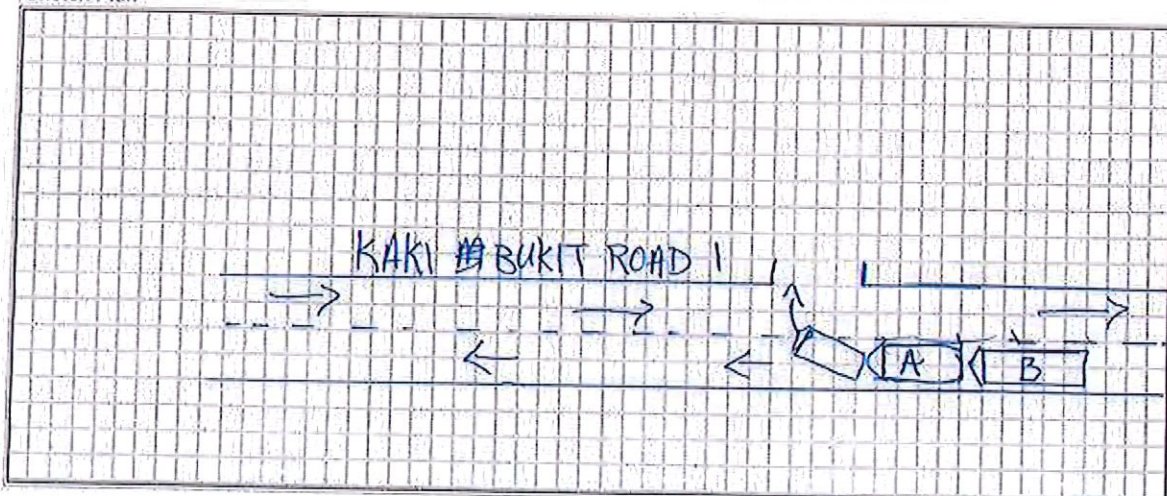 KAKI BUKIT ROAD 1
A
B